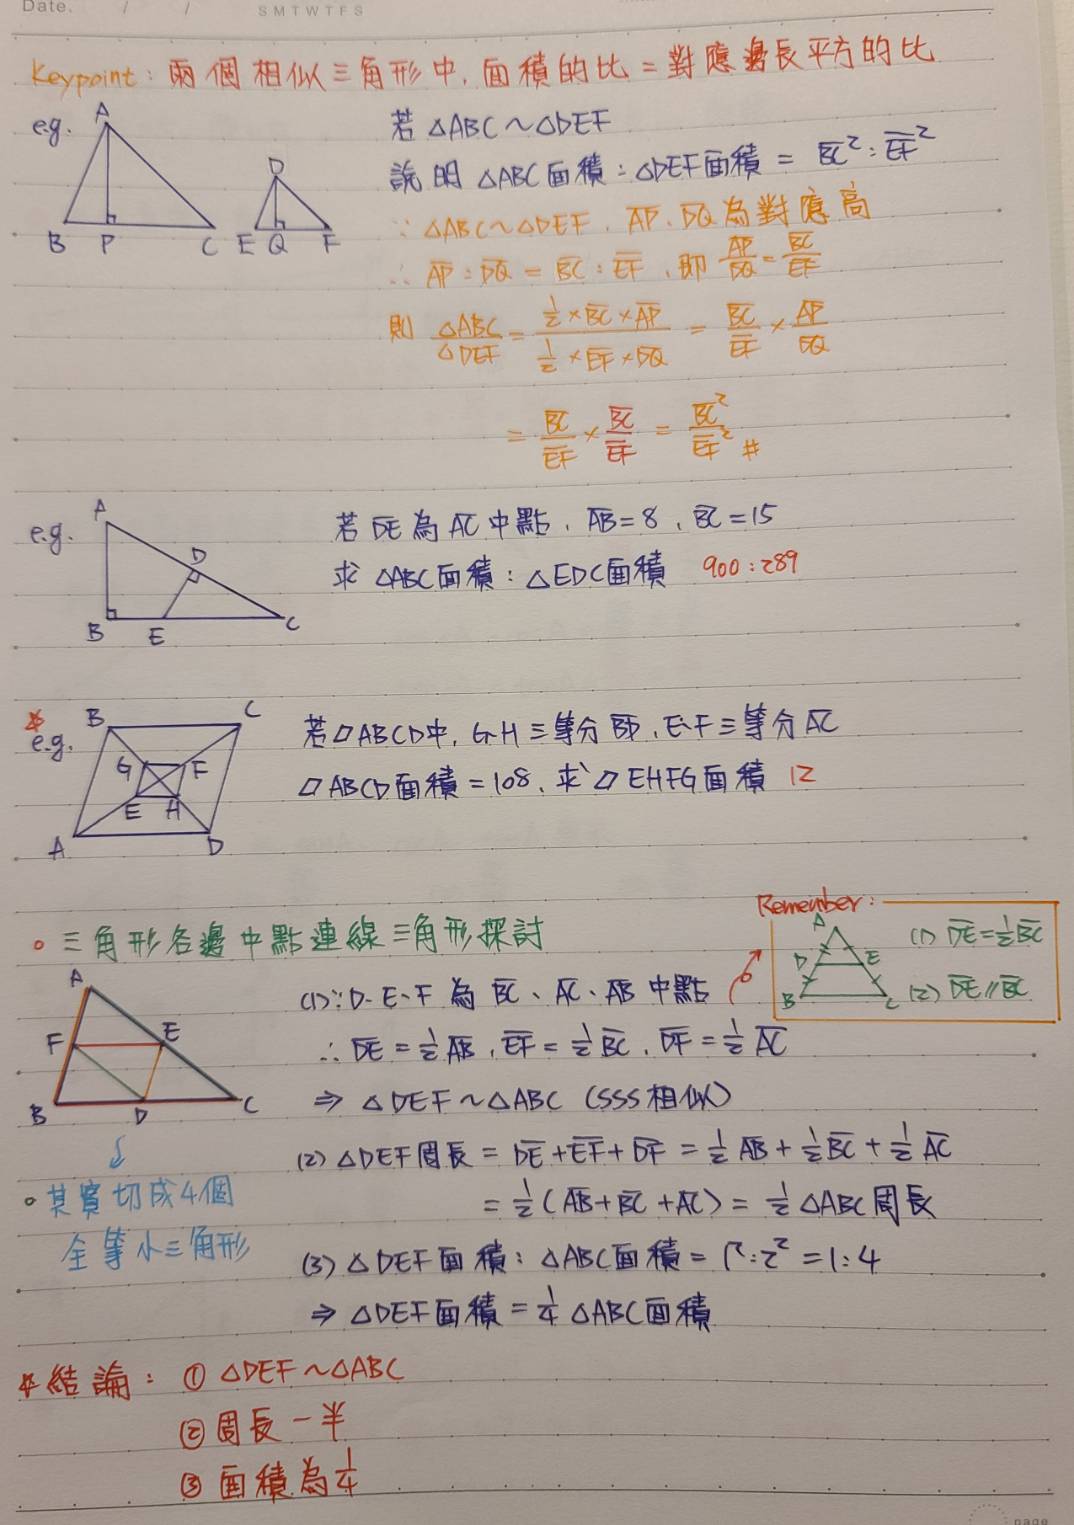 Date. / / S M T W T F S
Keypoint: 兩個相似三角形中, 面積的比 = 對應邊長平方的比
e.g.
A
B P C
D
E Q F
若 △ABC～△DEF
說明 △ABC面積 : △DEF面積 = B̅C̅² : E̅F̅²
∵ △ABC～△DEF , A̅P̅、D̅Q̅ 為對應高
∴ A̅P̅ : D̅Q̅ = B̅C̅ : E̅F̅ , 即 A̅P̅/D̅Q̅ = B̅C̅/E̅F̅
則 △ABC/△DEF = (½ × B̅C̅ × A̅P̅)/(½ × E̅F̅ × D̅Q̅) = B̅C̅/E̅F̅ × A̅P̅/D̅Q̅
= B̅C̅/E̅F̅ × B̅C̅/E̅F̅ = B̅C̅²/E̅F̅² #
e.g.
A
D
B E C
若 D̅E̅ 為 A̅C̅ 中點 , A̅B̅ = 8 , B̅C̅ = 15
求 △ABC面積 : △EDC面積 900 : 289
e.g.
B C
G F
E H
A D
若▱ABCD中, G、H 三等分 B̅D̅ , E、F 三等分 A̅C̅
▱ABCD面積 = 108 , 求 ▱EHFG面積 12
。三角形各邊中點連線三角形探討
A
F E
B D C
Remember:
A
D E
B C
(1) D̅E̅ = ½ B̅C̅
(2) D̅E̅ // B̅C̅
(1) ∵ D、E、F 為 B̅C̅、A̅C̅、A̅B̅ 中點
∴ D̅E̅ = ½ A̅B̅ , E̅F̅ = ½ B̅C̅ , D̅F̅ = ½ A̅C̅
⇒ △DEF～△ABC (SSS相似)
(2) △DEF周長 = D̅E̅ + E̅F̅ + D̅F̅ = ½ A̅B̅ + ½ B̅C̅ + ½ A̅C̅
= ½ (A̅B̅ + B̅C̅ + A̅C̅) = ½ △ABC周長
。其實切成4個
全等小三角形
(3) △DEF面積 : △ABC面積 = 1² : 2² = 1 : 4
⇒ △DEF面積 = ¼ △ABC面積
結論 : ① △DEF～△ABC
② 周長一半
③ 面積為¼
page